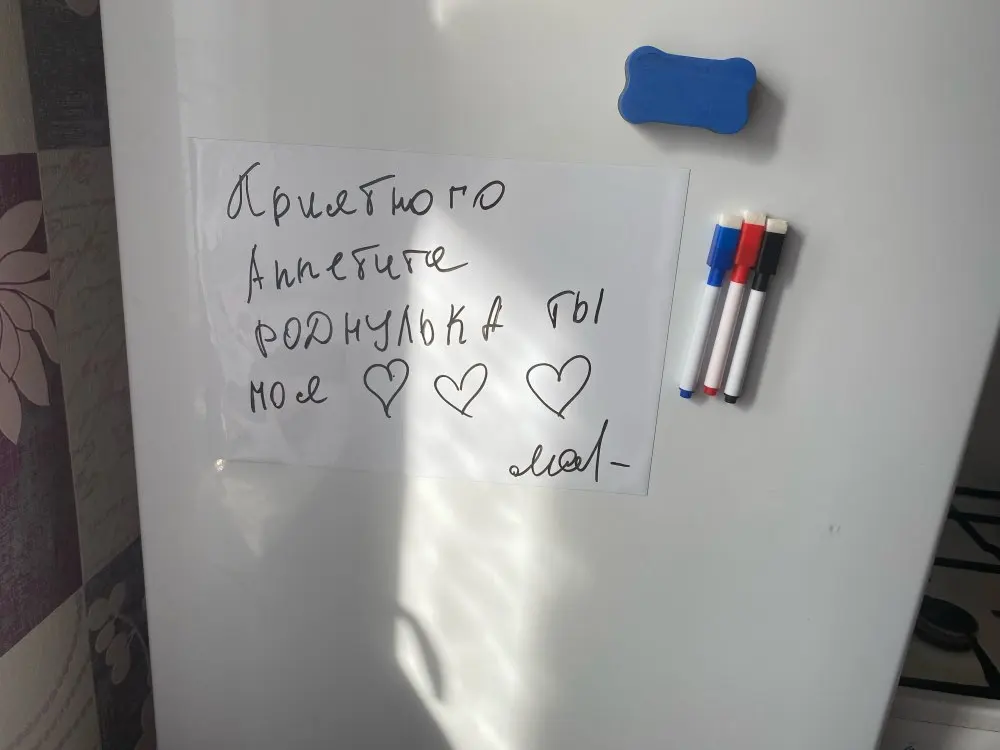 Приятного
Аппетита
РОДНУЛЬКА ТЫ
моя ♡ ♡ ♡